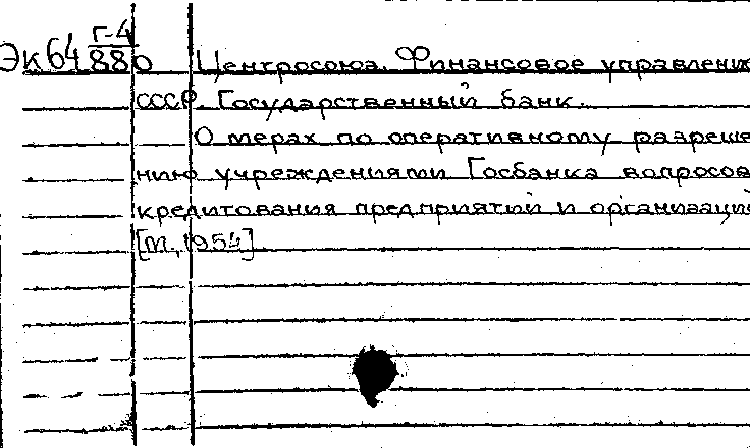 Эк64 Г-4
880 Центросоюз. Финансовое управление
СССР. Государственный банк.
О мерах по оперативному разреше
нию учреждениями Госбанка вопросов
кредитования предприятий и организаций
[М., 1954]